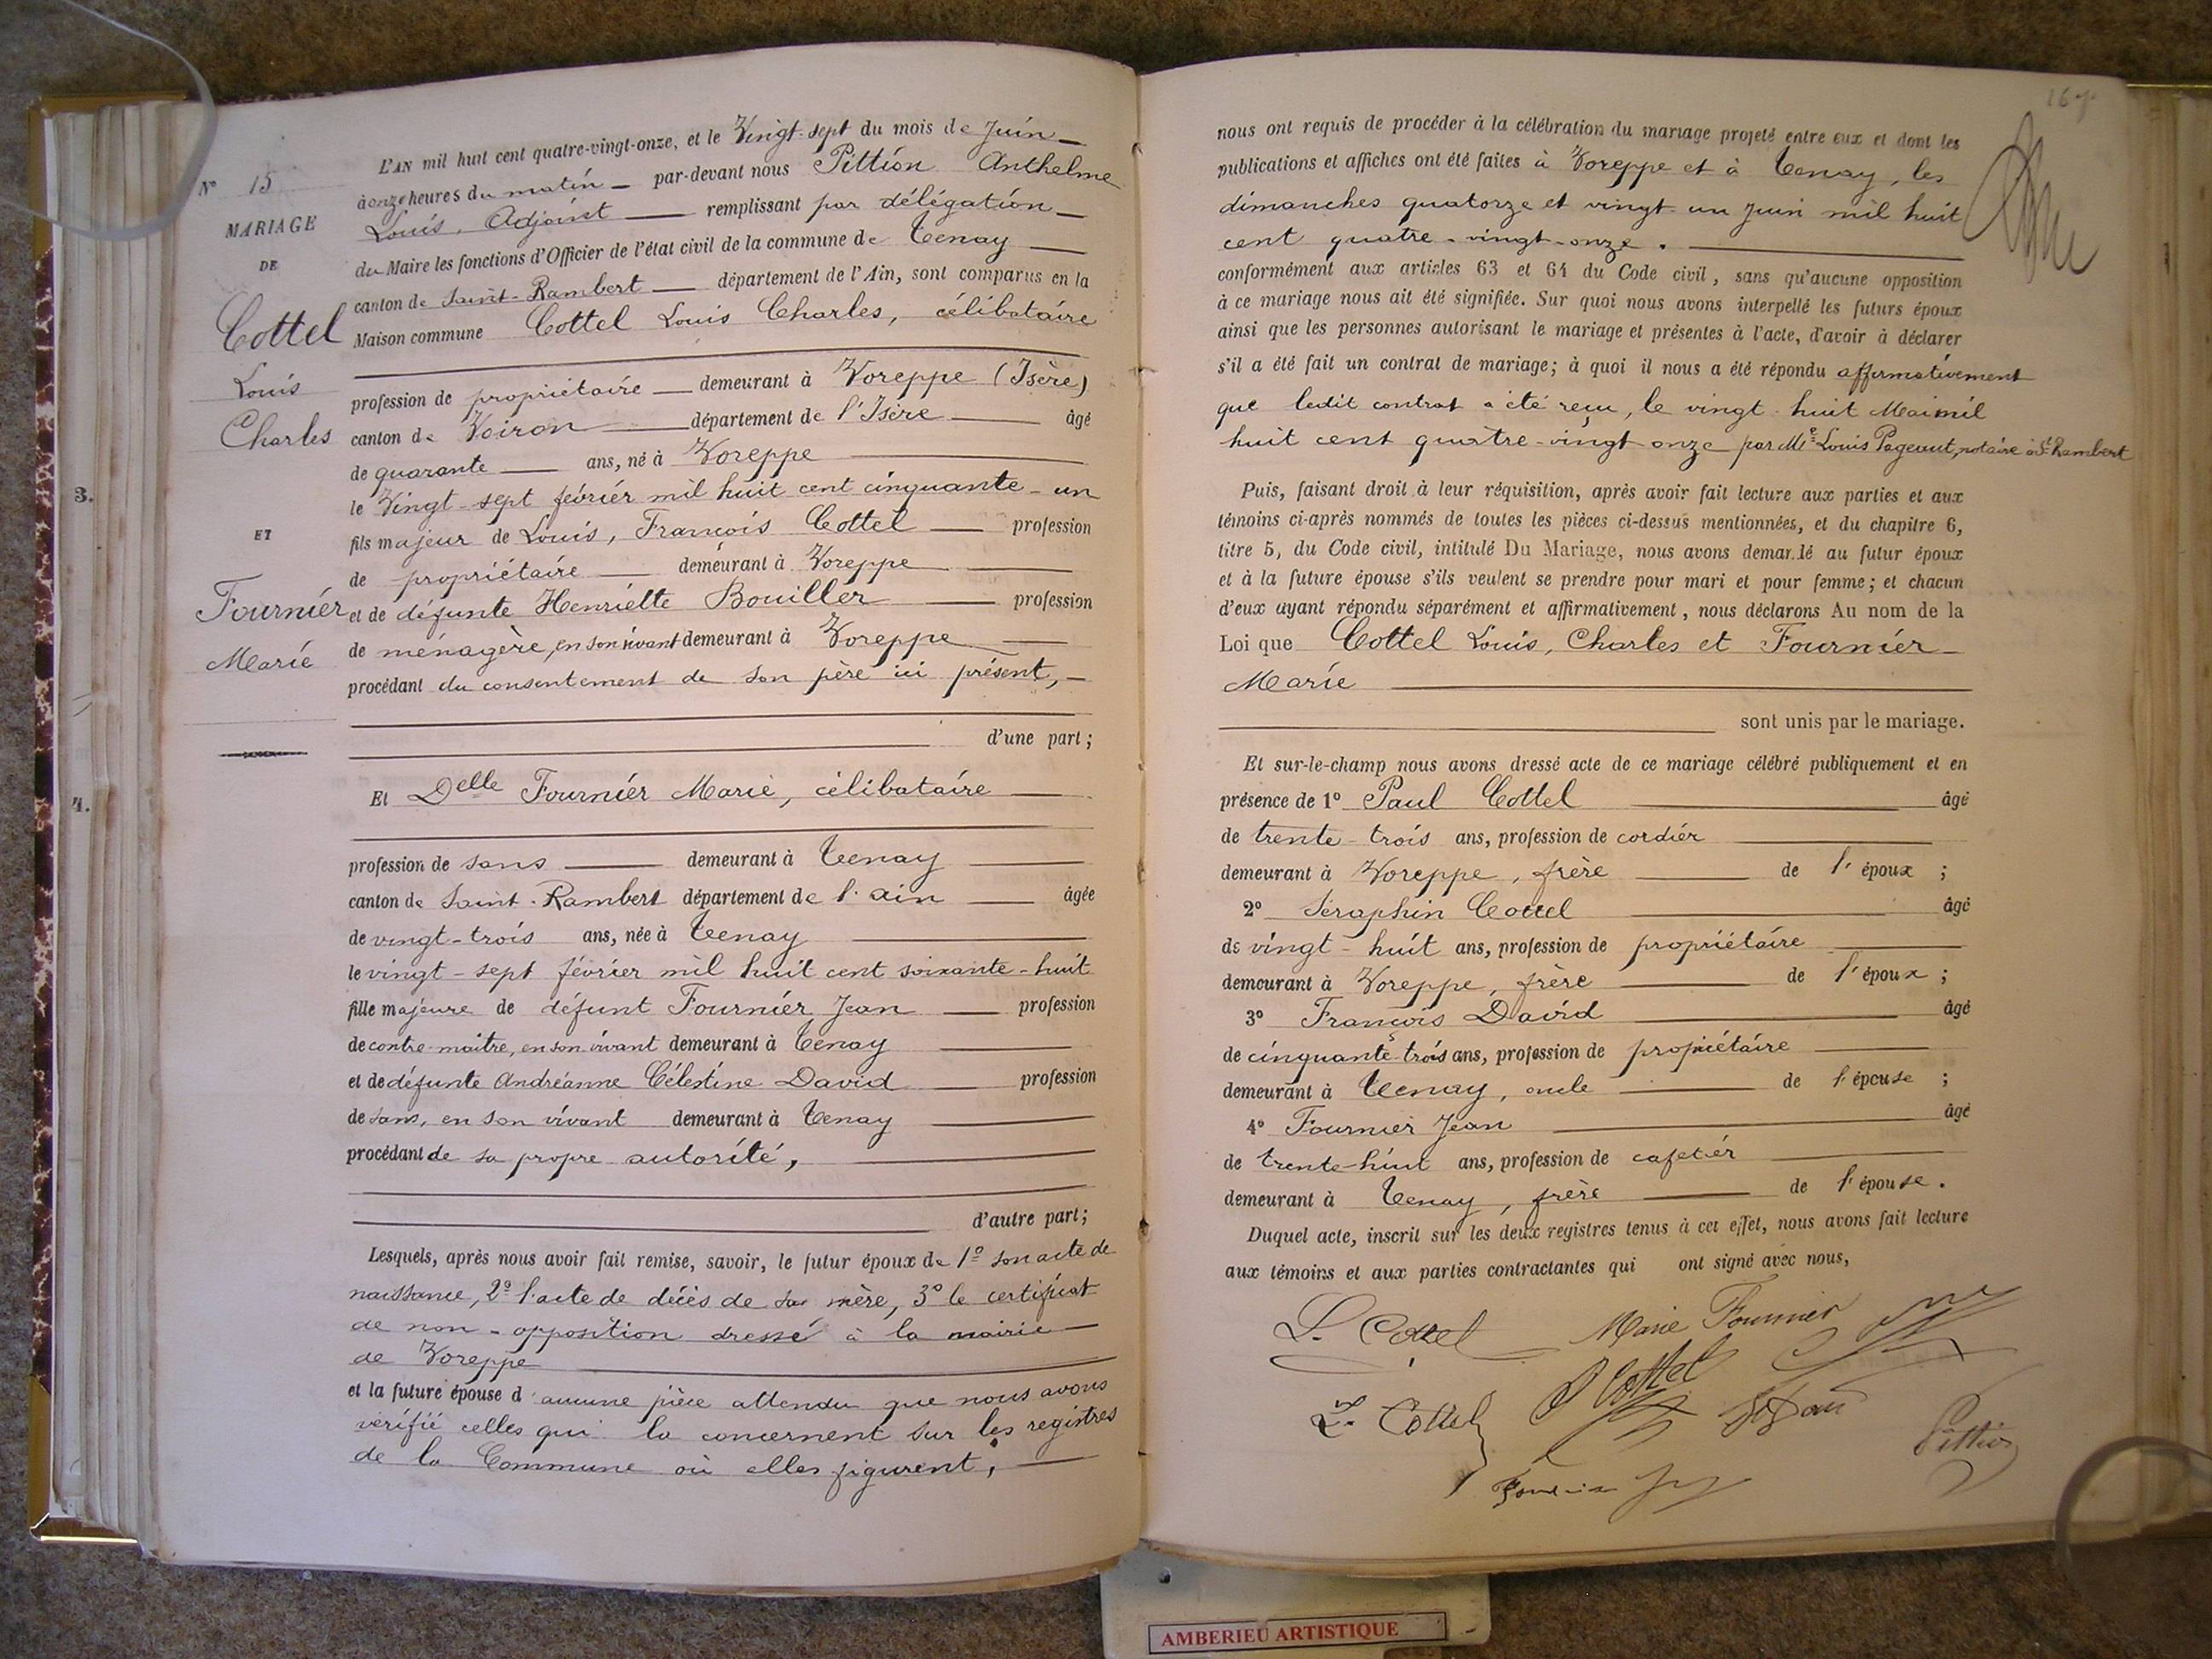 Nº 15
MARIAGE
DE
Cottel
Louis
Charles
ET
Fournier
Marie
3.
4.
L'AN mil huit cent quatre-vingt-onze, et le Vingt-sept du mois de Juin
à onze heures du matin par-devant nous Pittion Anthelme
Louis, Adjoint remplissant par délégation
du Maire les fonctions d'Officier de l'état civil de la commune de Tenay
canton de Saint-Rambert département de l'Ain, sont comparus en la
Maison commune Cottel Louis Charles, célibataire
profession de propriétaire demeurant à Voreppe (Isère)
canton de Voiron département de l'Isère âgé
de quarante ans, né à Voreppe
le Vingt-sept février mil huit cent cinquante-un
fils majeur de Louis, François Cottel profession
de propriétaire demeurant à Voreppe
et de défunte Henriette Bouiller profession
de ménagère, en son vivant demeurant à Voreppe
procédant du consentement de son père ici présent,
d'une part;
Et Delle Fournier Marie, célibataire
profession de sans demeurant à Tenay
canton de Saint-Rambert département de l'ain âgée
de vingt-trois ans, née à Tenay
le vingt-sept février mil huit cent soixante-huit
fille majeure de défunt Fournier Jean profession
de contre-maître, en son vivant demeurant à Tenay
et de défunte Andréanne Célestine David profession
de sans, en son vivant demeurant à Tenay
procédant de sa propre autorité,
d'autre part;
Lesquels, après nous avoir fait remise, savoir, le futur époux de 1º son acte de
naissance, 2º l'acte de décès de sa mère, 3º le certificat
de non-opposition dressé à la mairie
de Voreppe
et la future épouse d'aucune pièce attendu que nous avons
vérifié celles qui la concernent sur les registres
de la Commune où elles figurent,
nous ont requis de procéder à la célébration du mariage projeté entre eux et dont les
publications et affiches ont été faites à Voreppe et à Tenay, les
dimanches quatorze et vingt-un Juin mil huit
cent quatre-vingt-onze.
conformément aux articles 63 et 64 du Code civil, sans qu'aucune opposition
à ce mariage nous ait été signifiée. Sur quoi nous avons interpellé les futurs époux
ainsi que les personnes autorisant le mariage et présentes à l'acte, d'avoir à déclarer
s'il a été fait un contrat de mariage; à quoi il nous a été répondu affirmativement
que ledit contrat a été reçu, le vingt-huit Mai mil
huit cent quatre-vingt onze par Me Louis notaire à St Rambert
Puis, faisant droit à leur réquisition, après avoir fait lecture aux parties et aux
témoins ci-après nommés de toutes les pièces ci-dessus mentionnées, et du chapitre 6,
titre 5, du Code civil, intitulé Du Mariage, nous avons demandé au futur époux
et à la future épouse s'ils veulent se prendre pour mari et pour femme; et chacun
d'eux ayant répondu séparément et affirmativement, nous déclarons Au nom de la
Loi que Cottel Louis, Charles et Fournier
Marie
sont unis par le mariage.
Et sur-le-champ nous avons dressé acte de ce mariage célébré publiquement et en
présence de 1º Paul Cottel âgé
de trente-trois ans, profession de cordier
demeurant à Voreppe, frère de l'époux;
2º Séraphin Cottel âgé
de vingt-huit ans, profession de propriétaire
demeurant à Voreppe, frère de l'époux;
3º François David âgé
de cinquante-trois ans, profession de propriétaire
demeurant à Tenay, oncle de l'épouse;
4º Fournier Jean âgé
de trente-huit ans, profession de cafetier
demeurant à Tenay, frère de l'épouse.
Duquel acte, inscrit sur les deux registres tenus à cet effet, nous avons fait lecture
aux témoins et aux parties contractantes qui ont signé avec nous,
L. Cottel Marie Fournier
Cottel P Cottel
Pittion
AMBERIEU ARTISTIQUE